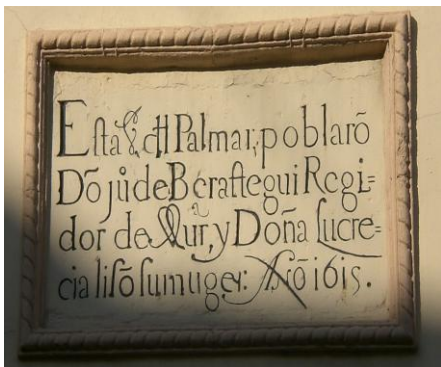 Esta Vª dl Palmar, poblarõ
Dõ juº de Berastegui Regi=
dor de Mur, y Doña Lucre=
cia lisõ su muger: Año 1615.